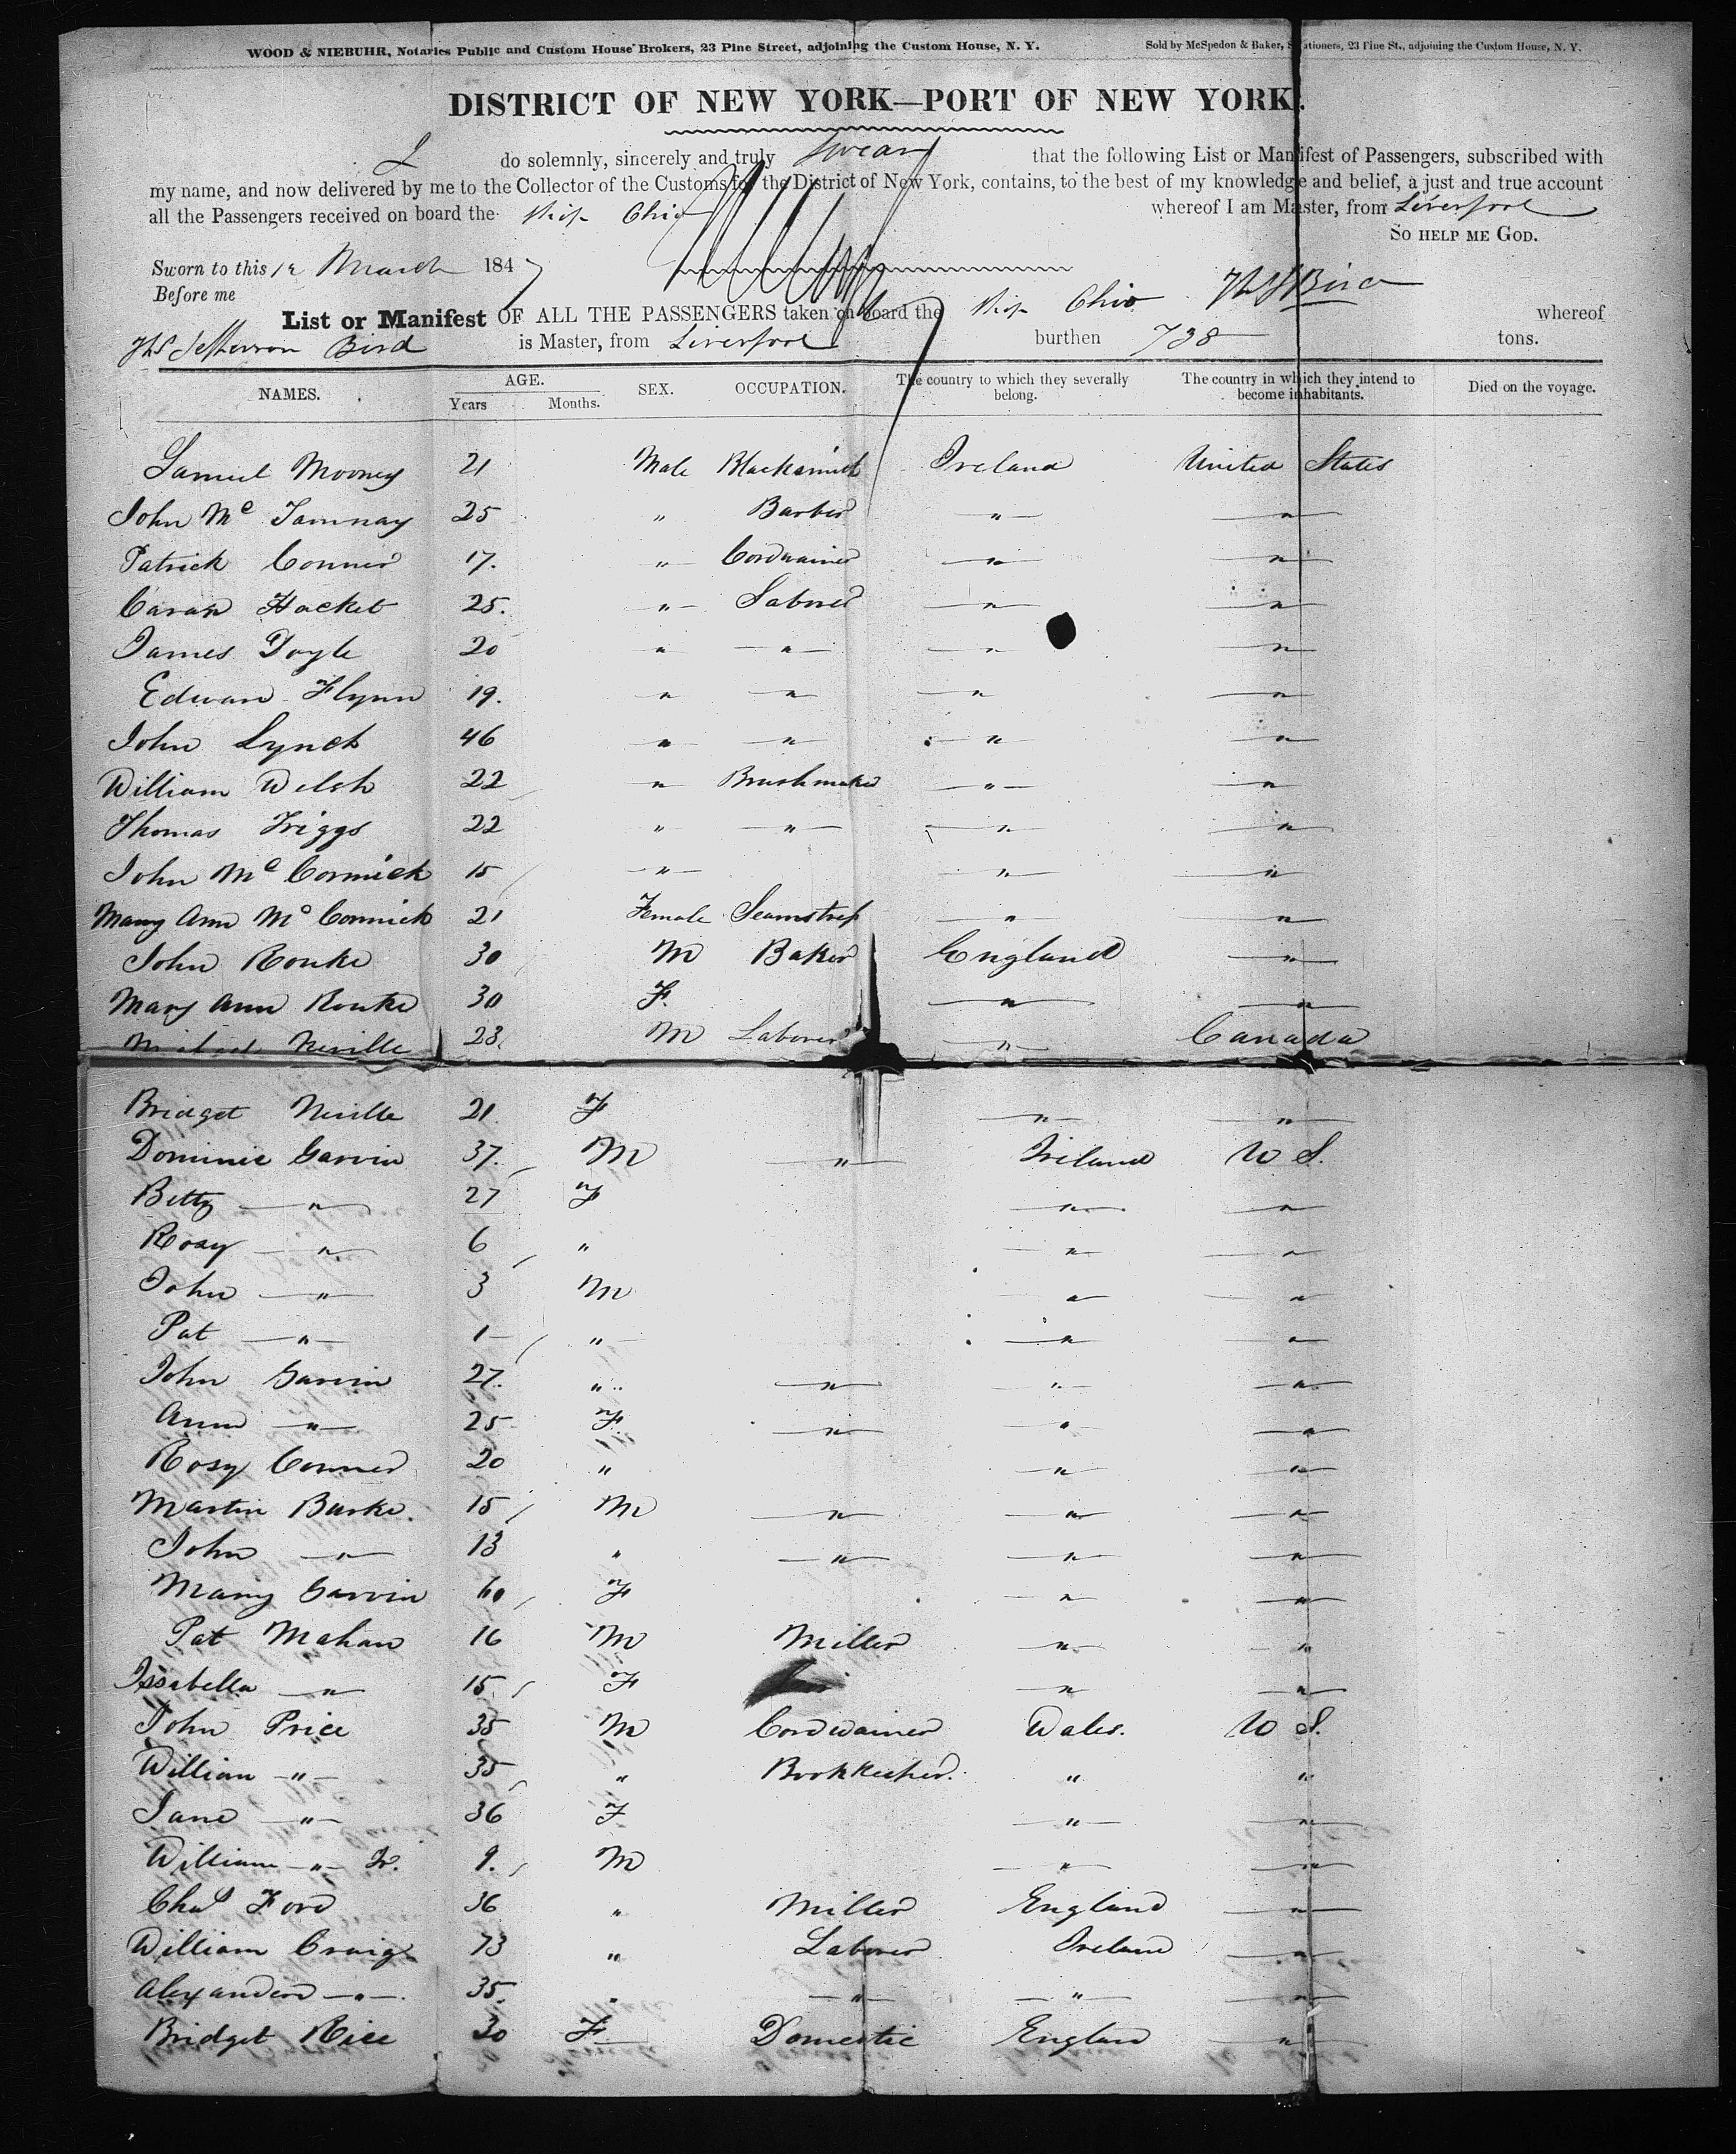 WOOD & NIEBUHR, Notaries Public and Custom House Brokers, 23 Pine Street, adjoining the Custom House, N. Y. Sold by McSpedon & Baker, Stationers, 23 Pine St., adjoining the Custom House, N. Y.
DISTRICT OF NEW YORK—PORT OF NEW YORK.
I do solemnly, sincerely and truly swear that the following List or Manifest of Passengers, subscribed with
my name, and now delivered by me to the Collector of the Customs for the District of New York, contains, to the best of my knowledge and belief, a just and true account
all the Passengers received on board the Ship Ohio whereof I am Master, from Liverpool
SO HELP ME GOD.
Sworn to this 12 March 1847
Before me
Ths J Bird
List or Manifest OF ALL THE PASSENGERS taken on board the Ship Ohio whereof
Ths Jefferson Bird is Master, from Liverpool burthen 738 tons.
NAMES. AGE. Years Months. SEX. OCCUPATION. The country to which they severally belong. The country in which they intend to become inhabitants. Died on the voyage.
Samuel Mooney 21 Male Blacksmith Ireland United States
John Mc Tamnay 25 " Barber " "
Patrick Conner 17. " Cordwainer " "
Hacket 25. " Laborer " "
James Doyle 20 " " " "
Edward Flynn 19. " " " "
John Lynch 46 " " " "
William Welsh 22 " Brushmaker " "
Thomas Triggs 22 " " " "
John Mc Cormick 15 " " "
Mary Ann Mc Cormick 21 Female Seamstress " "
John Rouke 30 M Baker England "
Mary Ann Rouke 30 F. " "
Michael Neville 23 M Laborer " Canada
Bridget Neville 21. F " "
Dominic Garvin 37. M " Ireland U S.
Betty " 27 F " "
Rosy " 6 " " "
John " 3 M " "
Pat " 1 " " "
John Garvin 27. " " " "
Ann " 25 F. " " "
Rosy Conner 20 " " "
Martin Burke. 15 M " " "
John " 13 " " " "
Mary Garvin 60 F " "
Pat Mahan 16 M Miller " "
Issabella " 15. F " "
John Price 35 M Cordwainer Wales. U S.
William " 35 " Bookkeeper. " "
Jane " 36 F " "
William " Jr. 9. M " "
Chas Ford 36 " Miller England "
William Craig 73 " Laborer Ireland "
Alexander " 35. " " " "
Bridget Rice 30 F Domestic England "